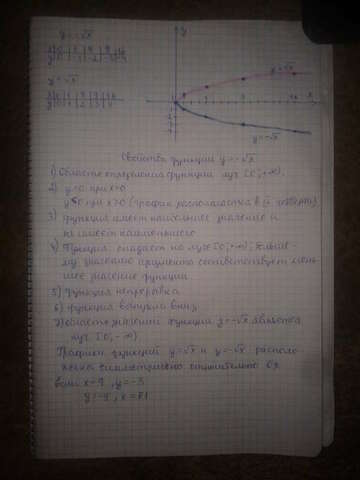 y=-√x
x|0|1|4|9|16
y|0|-1|-2|-3|-4
y=√x
x|0|1|4|9|16
y|0|1|2|3|4
y
y=√x
x
y=-√x
Свойства функции y=-√x
1) Область определения функции луч [0;+∞).
2) y=0 при x=0
y<0 при x>0 (график расположается в IV четверти)
3) Функция имеет наибольшее значение и
не имеет наименьшего
4) Функция спадает на луче [0;+∞); больше-
му значению аргумента соответствует мень-
шее значение функции
5) Функция непрерывна
6) Функция выпукла вниз
7) область значений функции y=-√x является
луч [0;-∞)
Графики функций y=√x и y=-√x распола-
гаются симметрично относительно Ox
если x=9, y=-3
y=-9, x=81